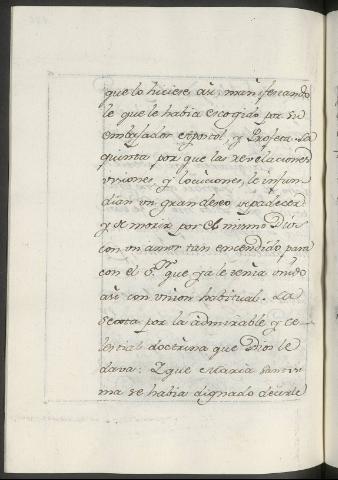 que lo hiciese asi, manifestando
le que le habia escogido por su
embajador apostol, y Profeta. La
quinta por que las revelaciones
visiones, y locuciones, le infun-
dian un gran deseo de padecer
y de morir por el mismo Dios
con un amor tan encendido para
con el Sr. que ya le tenia unido
asi con union habitual. La
sexta por la admirable y ce-
lestial doctrina que Dios le
dava: Y que Maria santisi
ma se habia dignado decirle